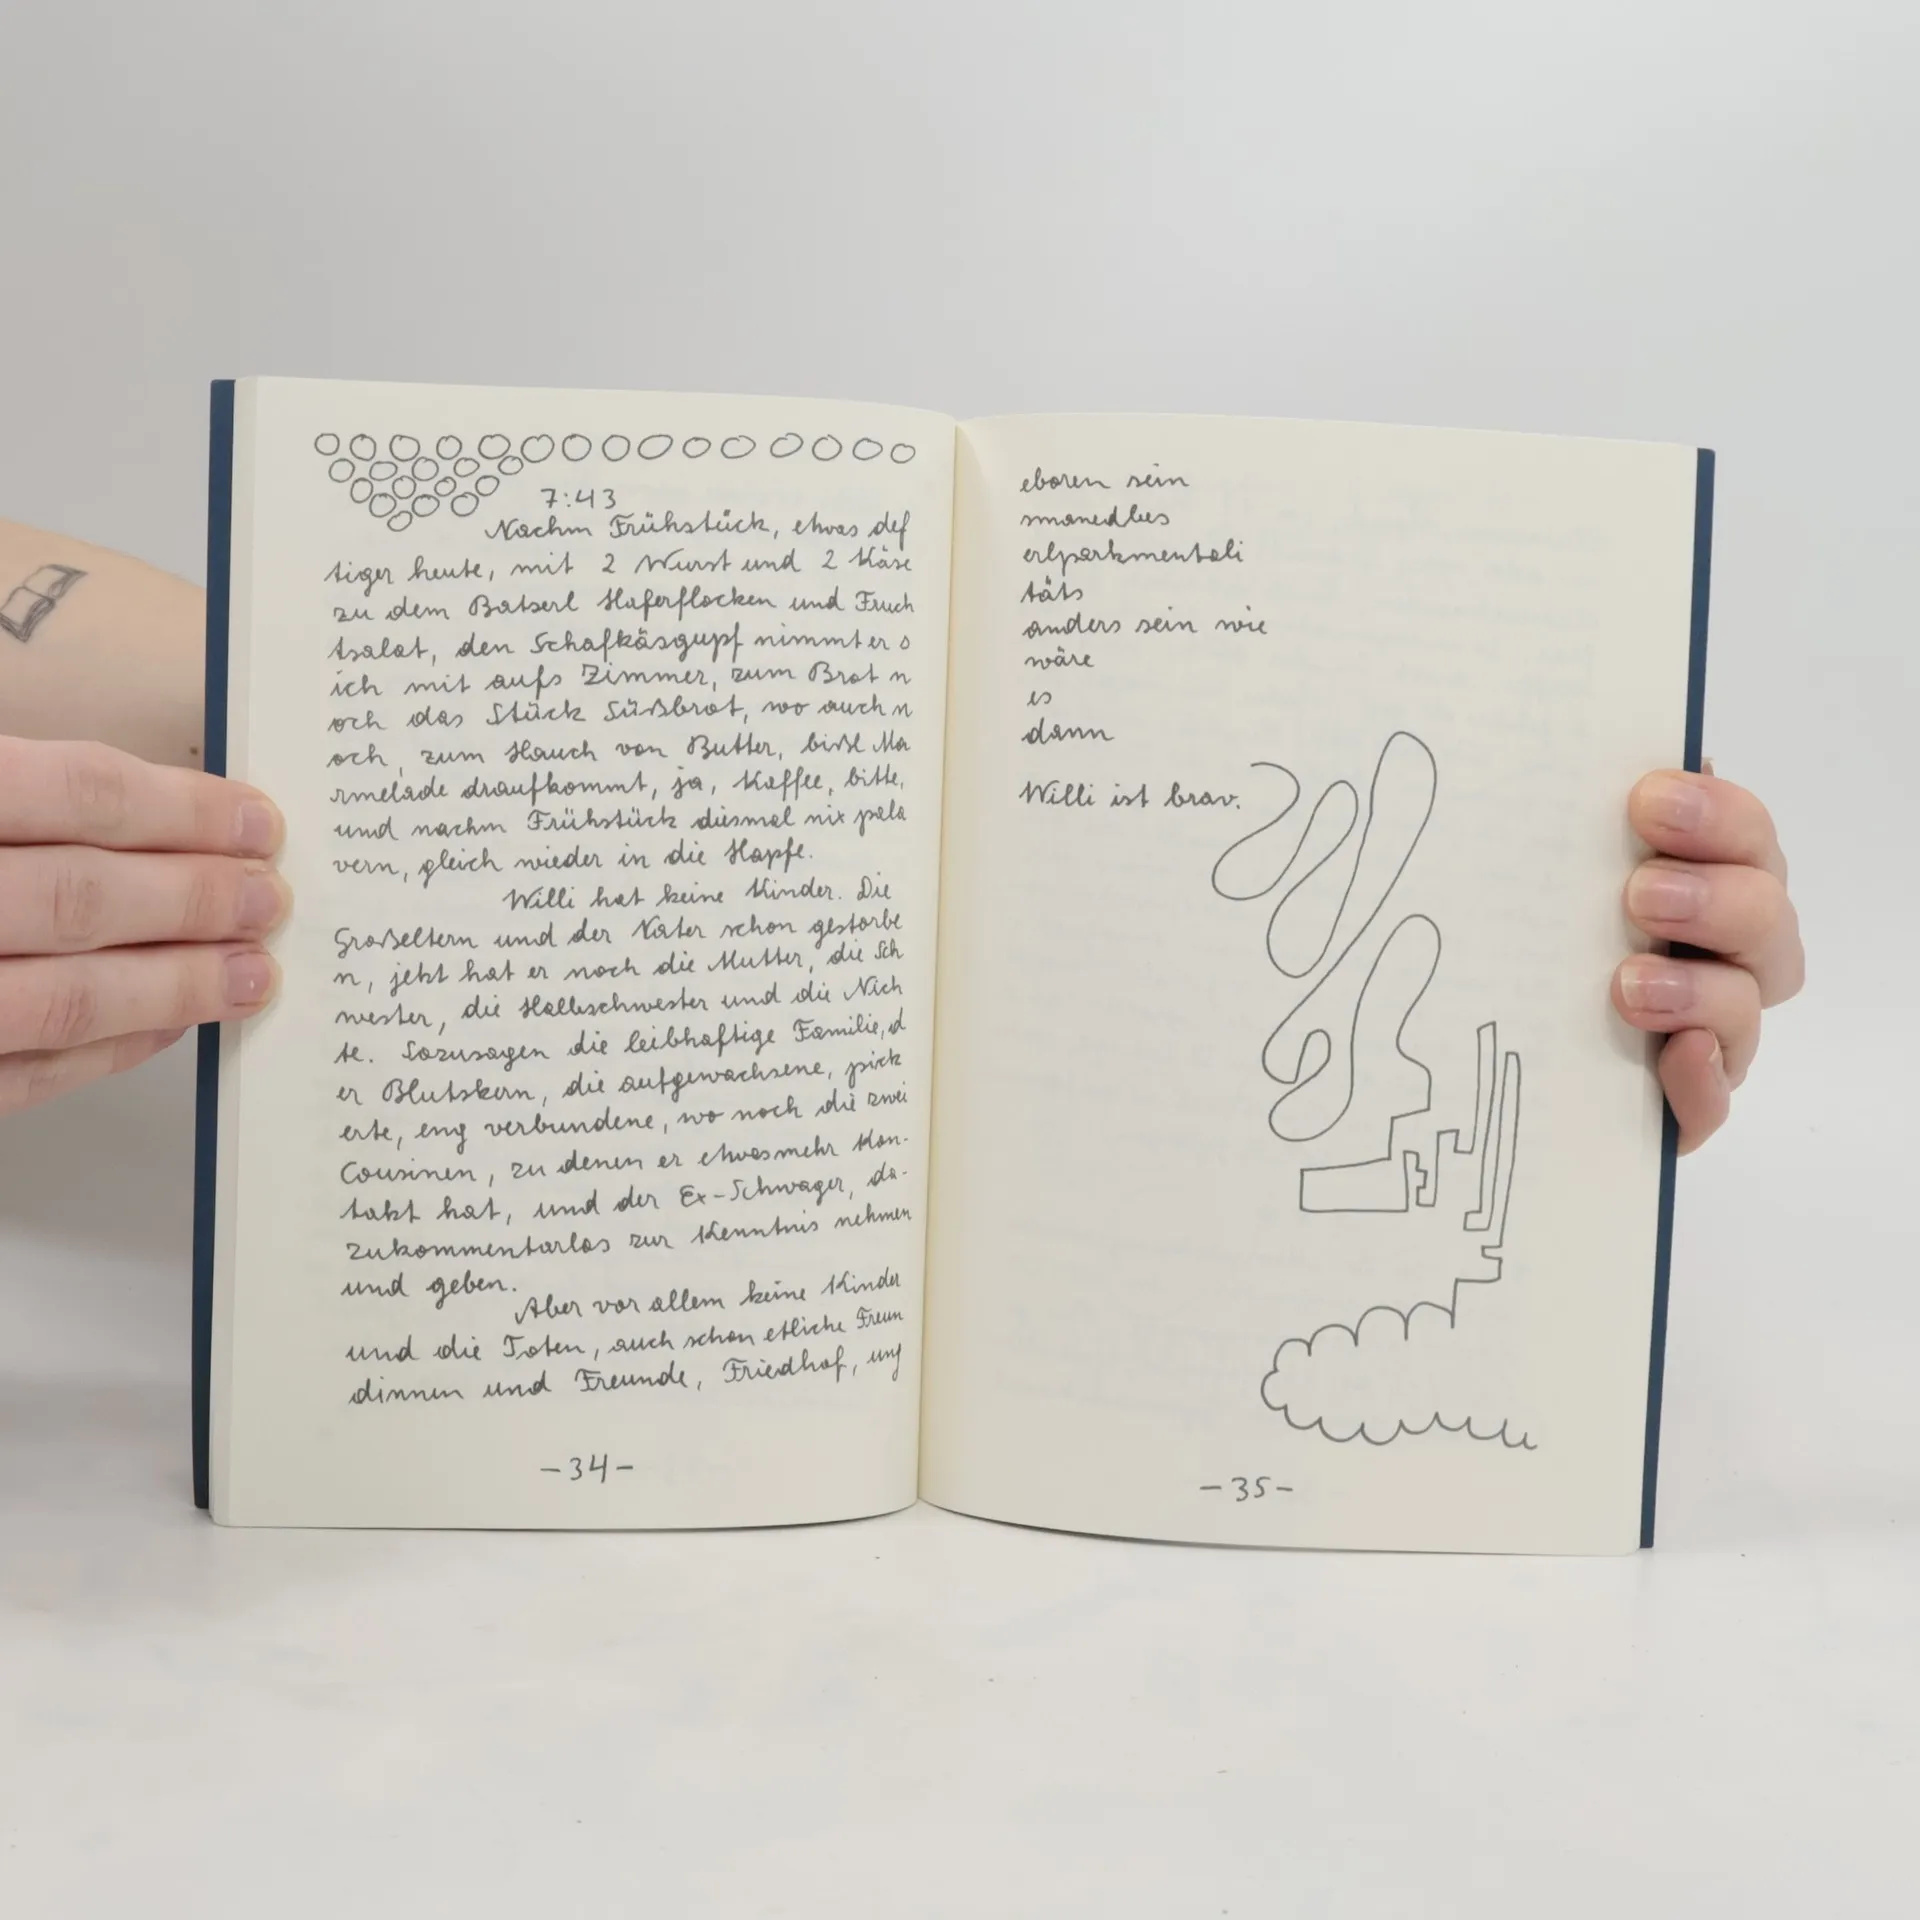 7:43
Nachm Frühstück, etwas def
tiger heute, mit 2 Wurst und 2 Käse
zu dem Batzerl Haferflocken und Fruch
tsalat, den Schafkäsgupf nimmt er s
ich mit aufs Zimmer, zum Brot n
och das Stück Süßbrot, wo auch n
och, zum Hauch von Butter, bißl Ma
rmelade draufkommt, ja, Kaffee, bitte,
und nachm Frühstück diesmal nix pala
vern, gleich wieder in die Hapfe.
Willi hat keine Kinder. Die
Großeltern und der Vater schon gestorbe
n, jetzt hat er noch die Mutter, die Sch
wester, die Halbschwester und die Nich
te. Sozusagen die leibhaftige Familie, d
er Blutskern, die aufgewachsene, pick
erte, eng verbundene, wo noch die zwei
Cousinen, zu denen er etwas mehr Kon-
takt hat, und der Ex-Schwager, da-
zukommentarlos zur Kenntnis nehmen
und geben.
Aber vor allem keine Kinder
und die Toten, auch schon etliche Freun
dinnen und Freunde, Friedhof, ung
-34-
eboren sein
erlparkmentali
täts
anders sein wie
wäre
es
dann
Willi ist brav.
-35-